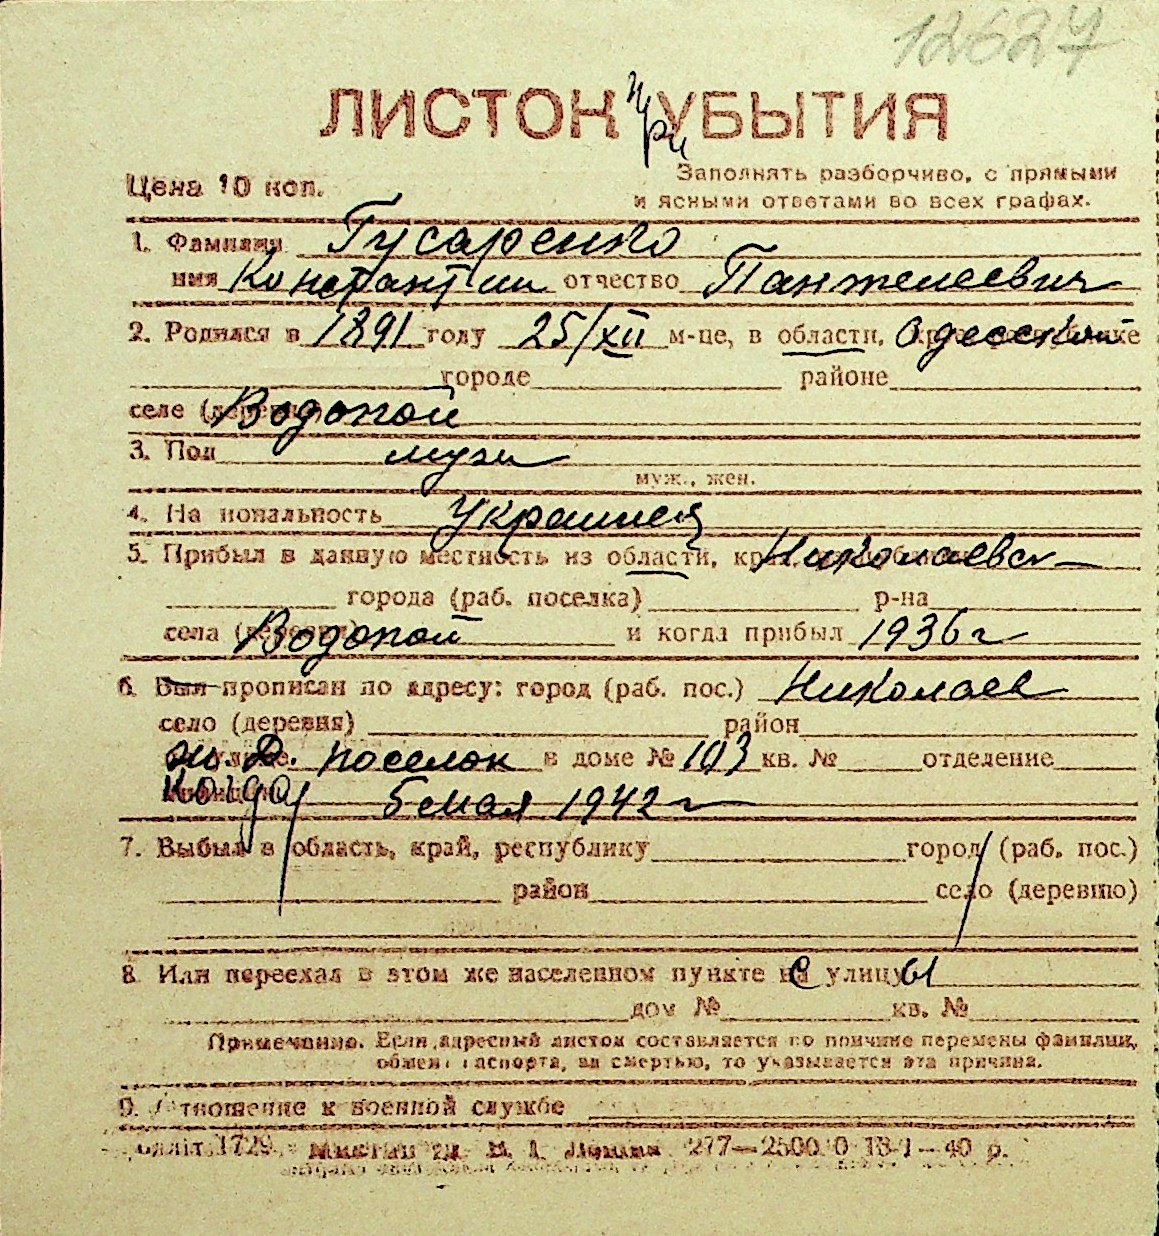 12627
ЛИСТОК при УБЫТИЯ
Цена 10 коп.
Заполнять разборчиво, с прямыми
и ясными ответами во всех графах.
1. Фамилия Гусаренко
имя Константин отчество Пантелеевич
2. Родился в 1891 году 25/XII м-це, в области, Одесской
городе районе
селе (деревне) Водопой
3. Пол муж
муж., жен.
4. Национальность Украинец
5. Прибыл в данную местность из области, Николаевск
города (раб. поселка) р-на
села (деревни) Водопой и когда прибыл 1936 г
6. Был прописан по адресу: город (раб. пос.) Николаев
село (деревня) район
ж. д. поселок в доме № 103 кв. № отделение
Когда 5 мая 1942 г
7. Выбыл в область, край, республику город (раб. пос.)
район село (деревню)
8. Или переехал в этом же населенном пункте с улицы
дом № кв. №
Примечание. Если адресный листок составляется по причине перемены фамилии,
обмена паспорта, за смертью, то указывается эта причина.
9. Отношение к военной службе
1729. 277—2500 0 18-1—40 р.